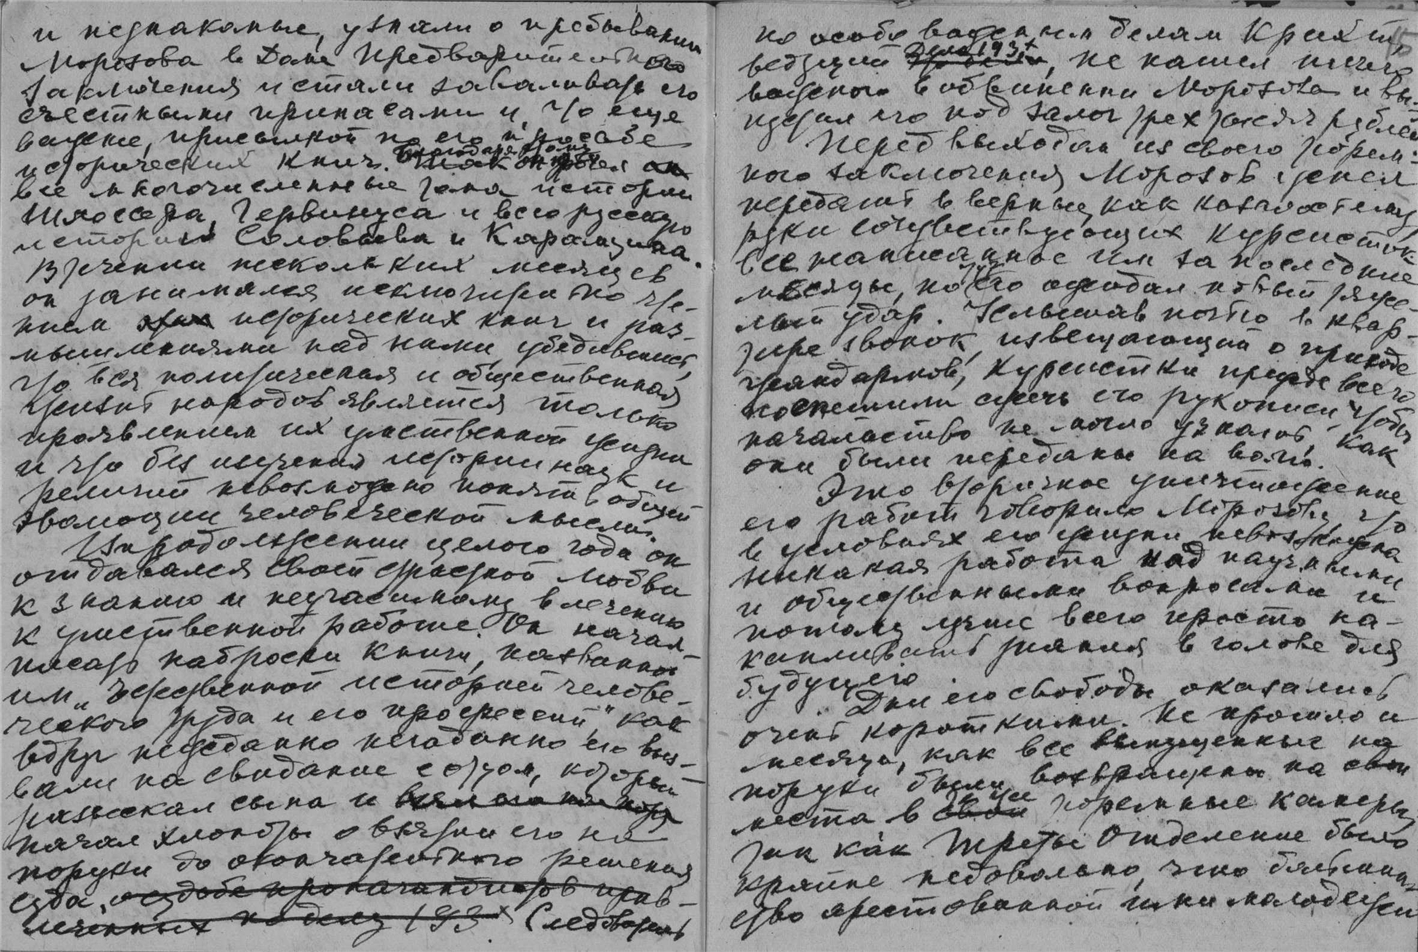 и незнакомые, узнали о пребывании
Морозова в Доме Предварительного
Заключения и стали заваливать его
съестными припасами и, что еще
важнее, присылкой по его просьбе
исторических книг. Благодаря этому он прочел
все многочисленные тома истории
Шлоссера, Гервинуса и всю русскую
историю Соловьева и Карамзина.
В течении нескольких месяцев
он занимался исключительно чте-
нием этих исторических книг и раз-
мышлениями над ними, убедившись,
что вся политическая и общественная
жизнь народов является только
проявлением их умственной жизни
и что без изучения истории наук и
религий невозможно понять общей
эволюции человеческой мысли.
В продолжении целого года он
отдавался своей страстной любви
к знанию и неугасимому влечению
к умственной работе. Он начал
писать наброски книги, названной
им „Естественной историей челове-
ческого труда и его профессий", как
вдруг нежданно негаданно его выз-
вали на свидание с отцом, который
разыскал сына и взял его на пору
начал хлопоты о взятии его на
поруки до окончательного решения
суда, о судьбе пропагандистов прив-
леченных по делу 193х Следователь
по особо важным делам Крахт,
ведущий Дело 193х, не нашел ничего
важного в обвинении Морозова и вы-
пустил его под залог трех тысяч рублей
Перед выходом из своего тюрем-
ного заключения Морозов успел
передать в верные, как казалось ему,
руки сочувствующих курсисток
все написанное им за последние
месяцы, но его ожидал новый тяже-
лый удар. Услышав ночью в квар-
тире звонок, извещающий о приходе
жандармов, курсистки прежде всего
поспешили сжечь его рукописи, чтобы
начальство не могло узнать, как
они были переданы на волю.
Это вторичное уничтожение
его работ говорило Морозову, что
в условиях его жизни невозможна
никакая работа над научными
и общественными вопросами и
потому лучше всего просто на-
капливать знания в голове для
будущего.
Дни его свободы оказались
очень короткими. Не прошло и
месяца, как все выпущенные на
поруки были возвращены на свои
места в свои те же тюремные камеры,
так как Третье Отделение было
крайне недовольно, что большин-
ство арестованной ими молодежи